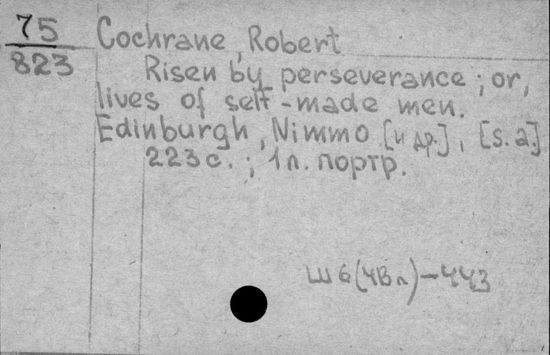 75
823
Cochrane, Robert
Risen by perseverance; or,
lives of self-made men.
Edinburgh, Nimmo [и др.], [s.a.]
223 с.; 1 л. портр.
Ш6(4Вл)-443